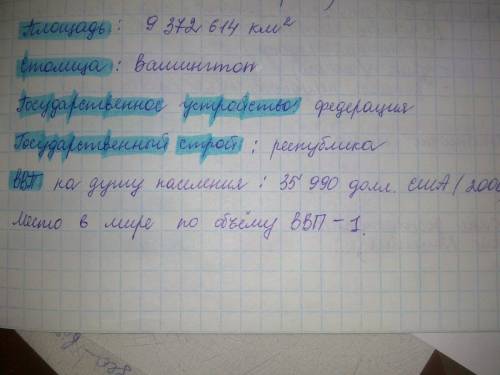 Площадь: 9 372 614 км²
Столица: Вашингтон
Государственное устройство: федерация
Государственный строй: республика
ВВП на душу населения: 35 990 долл. США (200
Место в мире по объёму ВВП – 1.